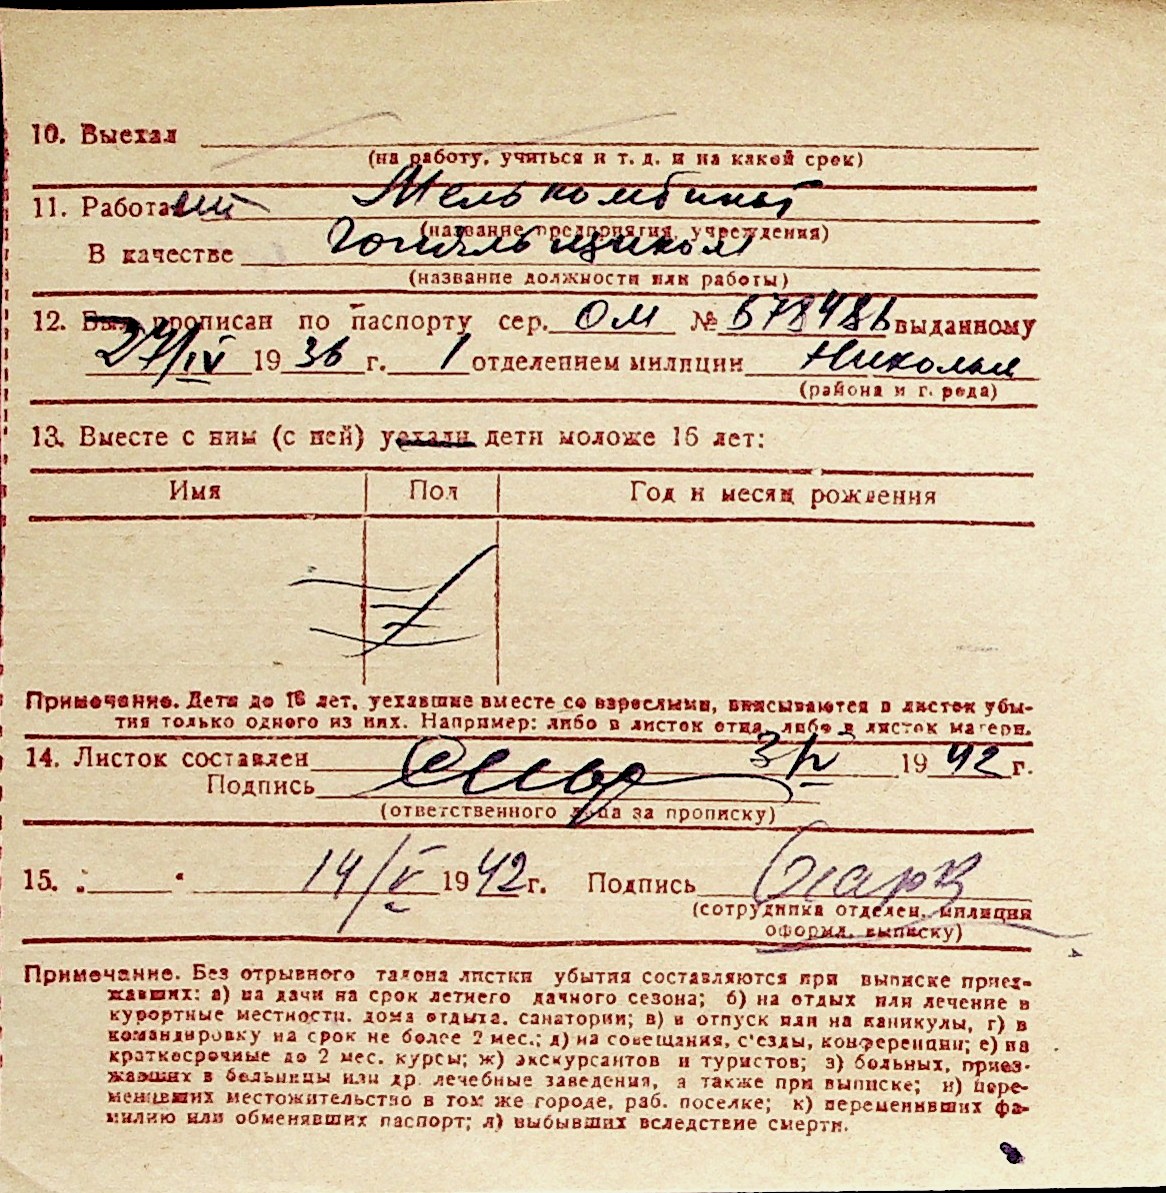 10. Выехал
(на работу, учиться и т. д. и на какой срок)
11. Работа Мелькомбинат
(название предприятия, учреждения)
В качестве
(название должности или работы)
12. Был прописан по паспорту сер. ОМ № 678486 выданному
27/IV 1936 г. 1 отделением милиции
(района и города)
13. Вместе с ним (с ней) уехали дети моложе 16 лет:
Имя Пол Год и месяц рождения
Примечание. Дети до 16 лет, уехавшие вместе со взрослыми, вписываются в листок убы-
тия только одного из них. Например: либо в листок отца, либо в листок матери.
14. Листок составлен 3/IV 1942 г.
Подпись
(ответственного лица за прописку)
15. „ “ 14/V 1942 г. Подпись
(сотрудника отделен. милиции
оформ. выписку)
Примечание. Без отрывного талона листки убытия составляются при выписке приез-
жавших: а) на дачи на срок летнего дачного сезона; б) на отдых или лечение в
курортные местности, дома отдыха, санатории; в) в отпуск или на каникулы, г) в
командировку на срок не более 2 мес.; д) на совещания, с'езды, конференции; е) на
краткосрочные до 2 мес. курсы; ж) экскурсантов и туристов; з) больных, приез-
жавших в больницы или др. лечебные заведения, а также при выписке; и) пере-
менивших местожительство в том же городе, раб. поселке; к) переменивших фа-
милию или обменявших паспорт; л) выбывших вследствие смерти.